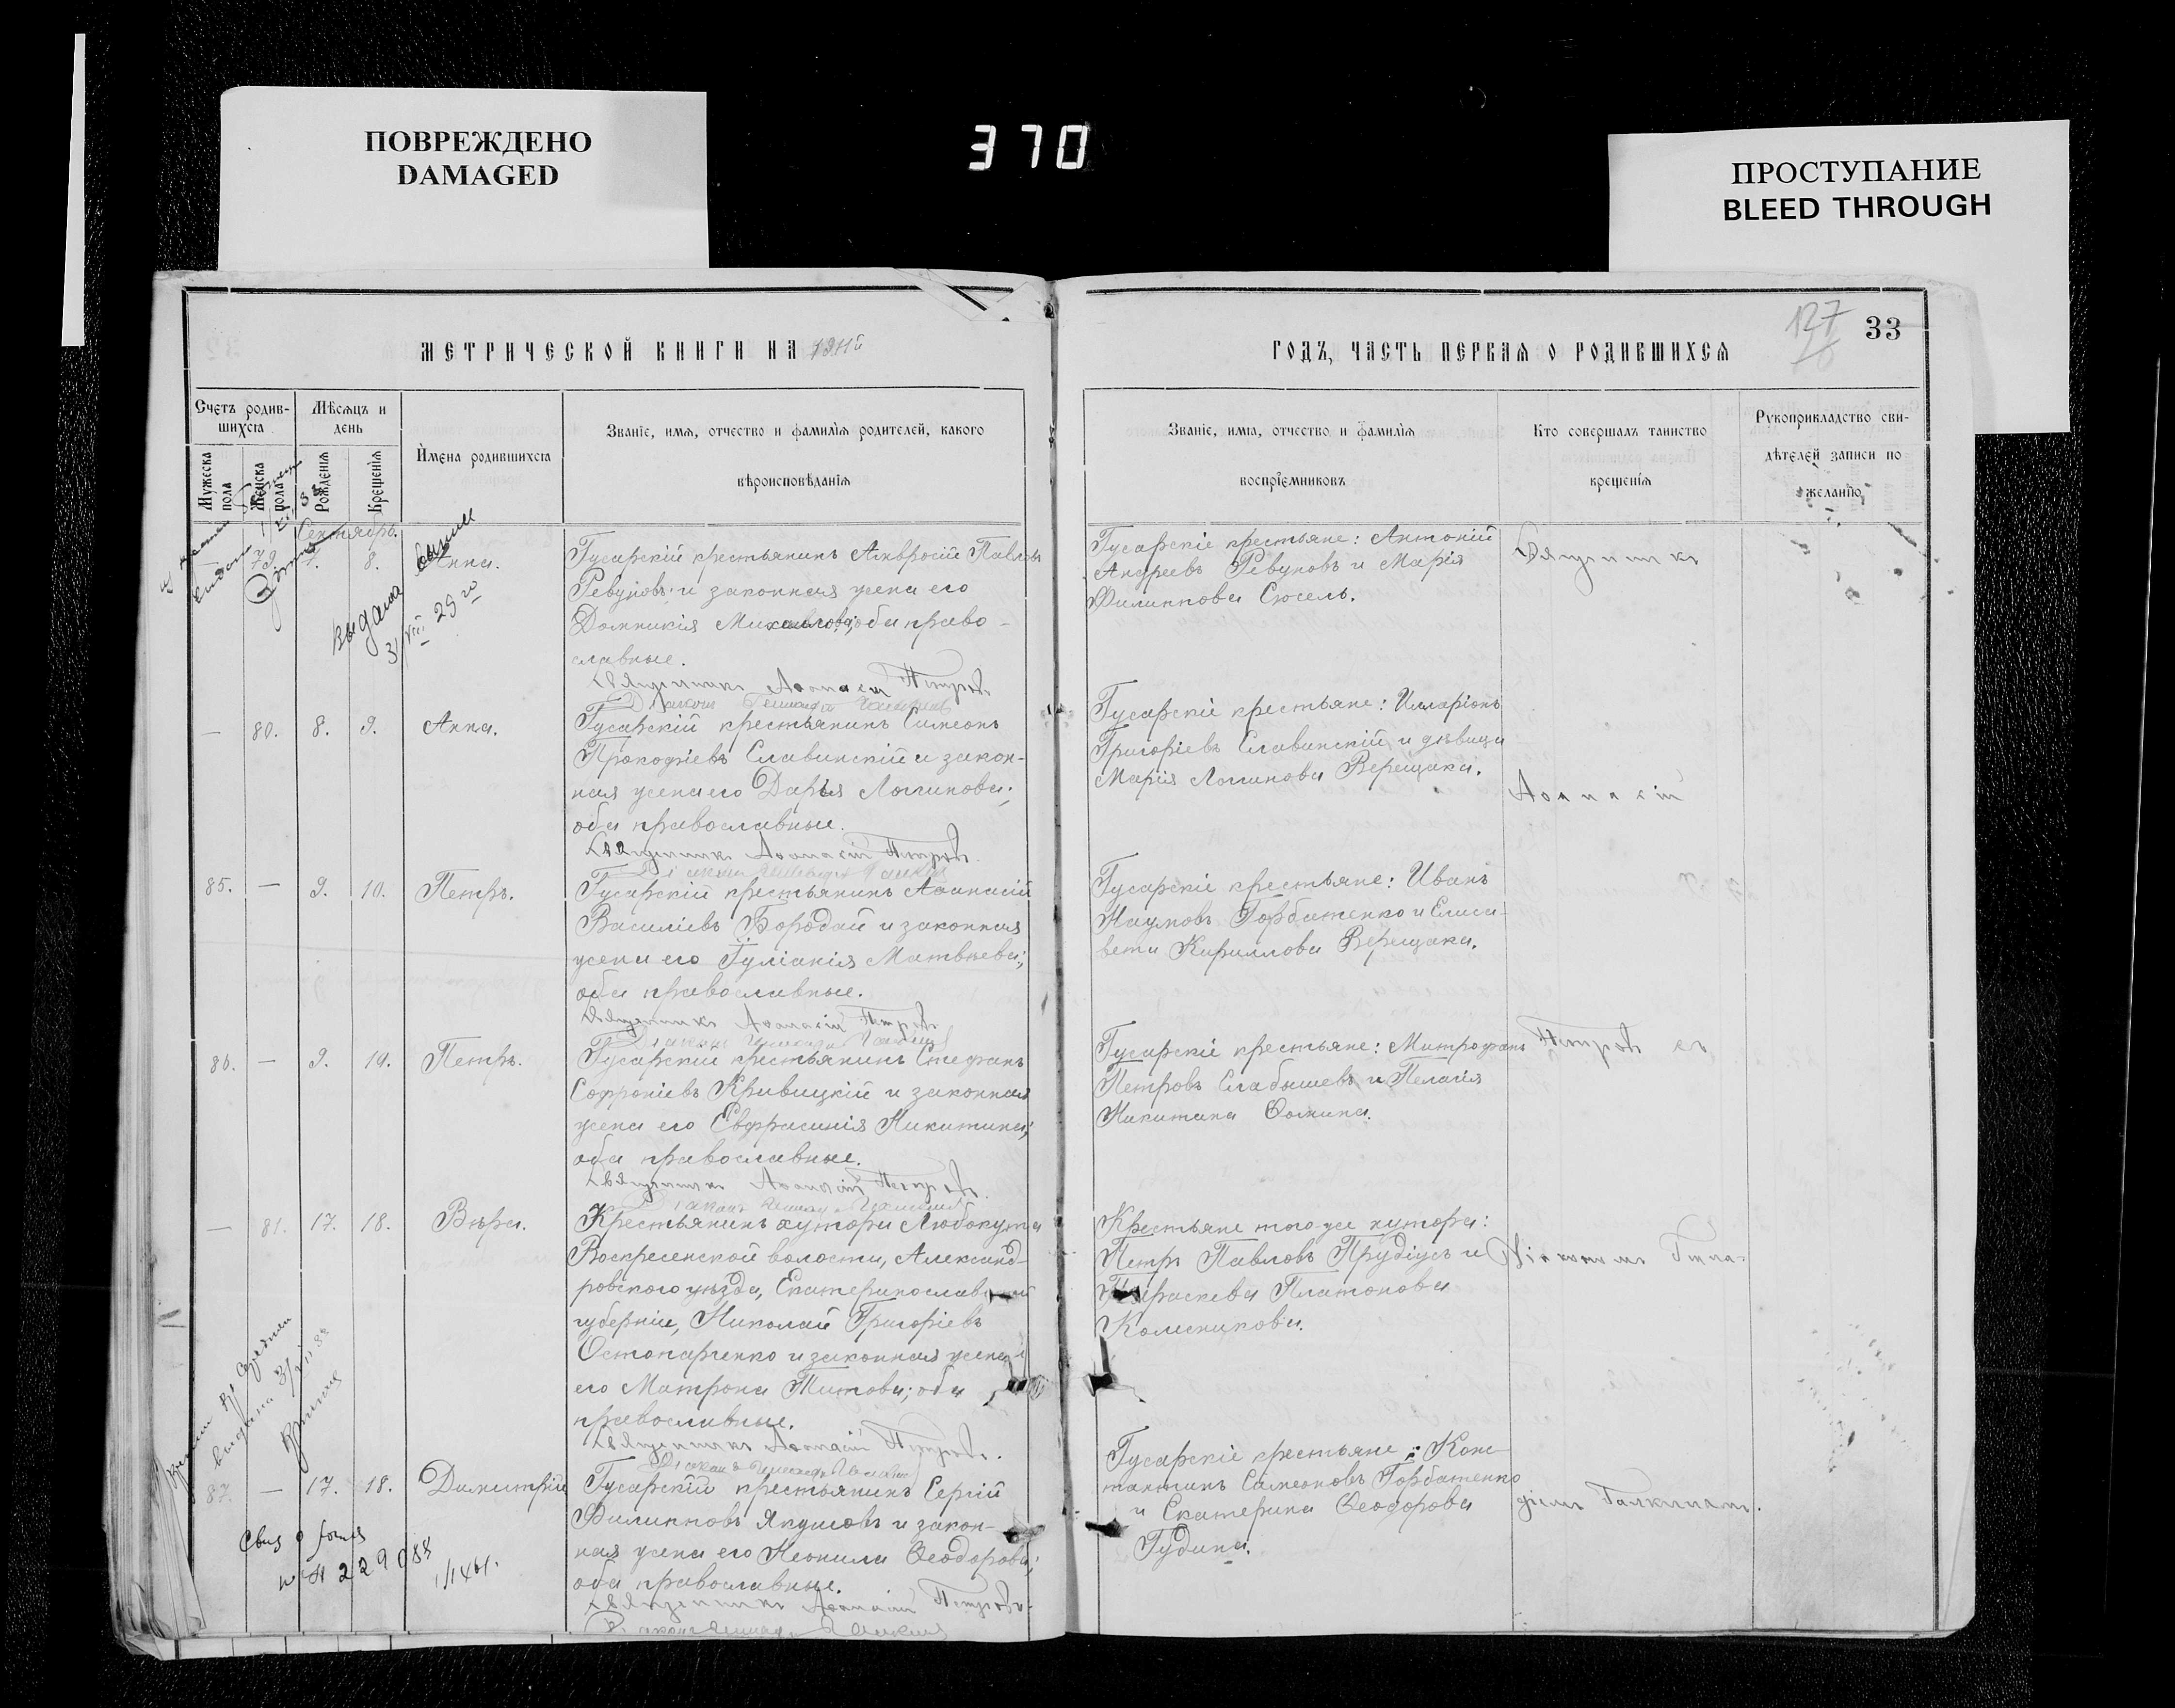 ПОВРЕЖДЕНО
DAMAGED
370
ПРОСТУПАНИЕ
BLEED THROUGH
МЕТРИЧЕСКОЙ КНИГИ НА 1911й
ГОДЪ, ЧАСТЬ ПЕРВАЯ О РОДИВШИХСЯ
127
33
Счетъ родив-
шихся
Мужеска пола
Женска пола
Мѣсяцъ и
день
Рожденія
Крещенія
Имена родившихся
Званіе, имя, отчество и фамилія родителей, какого
вѣроисповѣданія
Званіе, имя, отчество и фамилія
воспріемниковъ
Кто совершалъ таинство
крещенія
Рукоприкладство сви-
дѣтелей записи по
желанію
Сентябрь.
— 79. 7. 8. Анна.
выдана
31/VIII 29 го
Гусарскій крестьянинъ Амвросій Павловъ
Ревуновъ и законная жена его
Домникія Михаилова; оба право-
славные.
Священникъ Аѳанасій Петровъ
Діаконъ Геннадій Галкинъ
Гусарскіе крестьяне: Антоній
Андреевъ Ревуновъ и Марія
Филиппова Сюсель.
Священникъ
— 80. 8. 9. Анна.
Гусарскій крестьянинъ Симеонъ
Прокофіевъ Славинскій и закон-
ная жена его Дарья Логгинова;
оба православные.
Священникъ Аѳанасій Петровъ.
Діаконъ Геннадій Галкинъ
Гусарскіе крестьяне: Илларіонъ
Григоріевъ Славинскій и дѣвица
Марія Логгинова Верещака.
Аѳанасій
85. — 9. 10. Петръ.
Гусарскій крестьянинъ Аѳанасій
Василіевъ Бородай и законная
жена его Іуліанія Матвѣева;
оба православные.
Священникъ Аѳанасій Петровъ
Діаконъ Геннадій Галкинъ
Гусарскіе крестьяне: Иванъ
Наумовъ Горбатенко и Елиса-
вета Кириллова Верещака.
86. — 9. 19. Петръ.
Гусарскій крестьянинъ Стефанъ
Софроніевъ Кривицкій и законная
жена его Евфрасинія Никитина;
оба православные.
Священникъ Аѳанасій Петровъ.
Діаконъ Геннадій Галкинъ
Гусарскіе крестьяне: Митрофанъ
Петровъ Слабышевъ и Пелагія
Никитина Ѳомина.
Петровъ съ
— 81. 17. 18. Вѣра.
Крестьянинъ хутора Любокута
Воскресенской волости, Александ-
ровскаго уѣзда, Екатеринославской
губерніи, Николай Григоріевъ
Остопарченко и законная жена
его Матрона Титова; оба
православные.
Священникъ Аѳанасій Петровъ.
Діаконъ Геннадій Галкинъ
Крестьяне того-же хутора:
Петръ Павловъ Прудіусъ и
Параскева Платонова
Колесникова.
Діакономъ Генна-
87. — 17. 18. Димитрій
Гусарскій крестьянинъ Сергій
Филипповъ Якушовъ и закон-
ная жена его Неонила Ѳеодорова;
оба православные.
Священникъ Аѳанасій Петровъ.
Діаконъ Геннадій Галкинъ
Гусарскіе крестьяне: Конс-
тантинъ Симеоновъ Горбатенко
и Екатерина Ѳеодорова
Гудина.
діемъ Галкинымъ.
229088